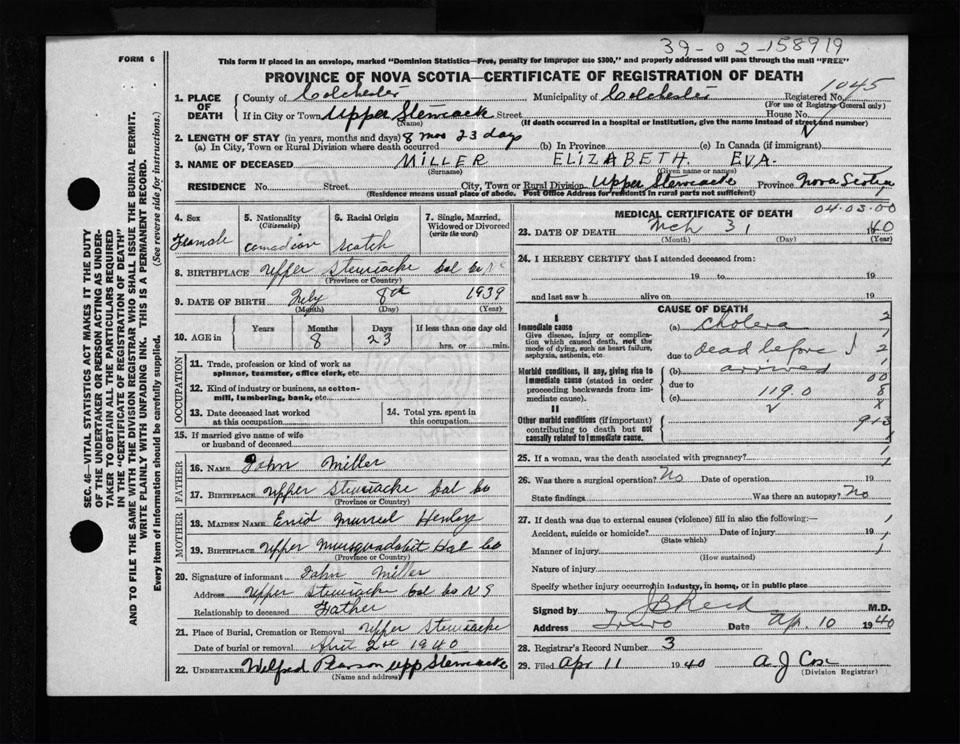 39-02-158919
FORM 6
This form if placed in an envelope, marked "Dominion Statistics—Free, penalty for improper use $300," and properly addressed will pass through the mail "FREE"
PROVINCE OF NOVA SCOTIA—CERTIFICATE OF REGISTRATION OF DEATH
1045
1. PLACE OF DEATH County of Colchester Municipality of Colchester Registered No.
(For use of Registrar General only)
If in City or Town Upper Stewiacke Street House No.
(Name) (If death occurred in a hospital or institution, give the name instead of street and number)
2. LENGTH OF STAY (in years, months and days) 8 mos 23 days
(a) In City, Town or Rural Division where death occurred (b) In Province (c) In Canada (if immigrant)
3. NAME OF DECEASED MILLER ELIZABETH EVA.
(Surname) (Given name or names)
RESIDENCE No. Street City, Town or Rural Division Upper Stewiacke Province Nova Scotia
(Residence means usual place of abode. Post Office Address for residents in rural parts not sufficient)
4. Sex
Female
5. Nationality
(Citizenship)
Canadian
6. Racial Origin
Scotch
7. Single, Married, Widowed or Divorced
(write the word)
8. BIRTHPLACE Upper Stewiacke Col Co N S
(Province or Country)
9. DATE OF BIRTH July 8th 1939
(Month) (Day) (Year)
10. AGE in Years Months Days If less than one day old
8 23 hrs. or min.
OCCUPATION
11. Trade, profession or kind of work as
spinner, teamster, office clerk, etc.
12. Kind of industry or business, as cotton-
mill, lumbering, bank, etc.
13. Date deceased last worked
at this occupation
14. Total yrs. spent in
this occupation
15. If married give name of wife
or husband of deceased
FATHER
16. NAME John Miller
17. BIRTHPLACE Upper Stewiacke Col Co
(Province or Country)
MOTHER
18. MAIDEN NAME Enid Muriel Henley
19. BIRTHPLACE Upper Musquodobit Hal Co
(Province or Country)
20. Signature of informant John Miller
Address Upper Stewiacke Col Co N S
Relationship to deceased Father
21. Place of Burial, Cremation or Removal Upper Stewiacke
Date of burial or removal April 2nd 1940
22. UNDERTAKER Welford Pearson Upp Stewiacke
(Name and address)
MEDICAL CERTIFICATE OF DEATH
04-03-00
23. DATE OF DEATH Mch 31 1940
(Month) (Day) (Year)
24. I HEREBY CERTIFY that I attended deceased from:
19 to 19
and last saw h alive on 19
CAUSE OF DEATH
I
Immediate cause
Give disease, injury or complication which caused death, not the mode of dying, such as heart failure, asphyxia, asthenia, etc.
(a) Cholera
due to dead before I
(b) arrived
Morbid conditions, if any, giving rise to immediate cause (stated in order proceeding backwards from immediate cause).
due to
(c) 119.0
II
Other morbid conditions (if important) contributing to death but not causally related to immediate cause.
25. If a woman, was the death associated with pregnancy?
26. Was there a surgical operation? No Date of operation 19
State findings Was there an autopsy? No
27. If death was due to external causes (violence) fill in also the following:—
Accident, suicide or homicide? Date of injury 19
(State which)
Manner of injury
(How sustained)
Nature of injury
Specify whether injury occurred in industry, in home, or in public place
Signed by J B Reid M.D.
Address Truro Date Ap. 10 1940
28. Registrar's Record Number 3
29. Filed Apr 11 1940 A J Cox
(Division Registrar)
SEC. 46—VITAL STATISTICS ACT MAKES IT THE DUTY
OF THE UNDERTAKER OR PERSON ACTING AS UNDER-
TAKER TO OBTAIN ALL THE PARTICULARS REQUIRED
IN THE "CERTIFICATE OF REGISTRATION OF DEATH"
AND TO FILE THE SAME WITH THE DIVISION REGISTRAR WHO SHALL ISSUE THE BURIAL PERMIT.
WRITE PLAINLY WITH UNFADING INK. THIS IS A PERMANENT RECORD.
Every item of information should be carefully supplied. (See reverse side for instructions.)